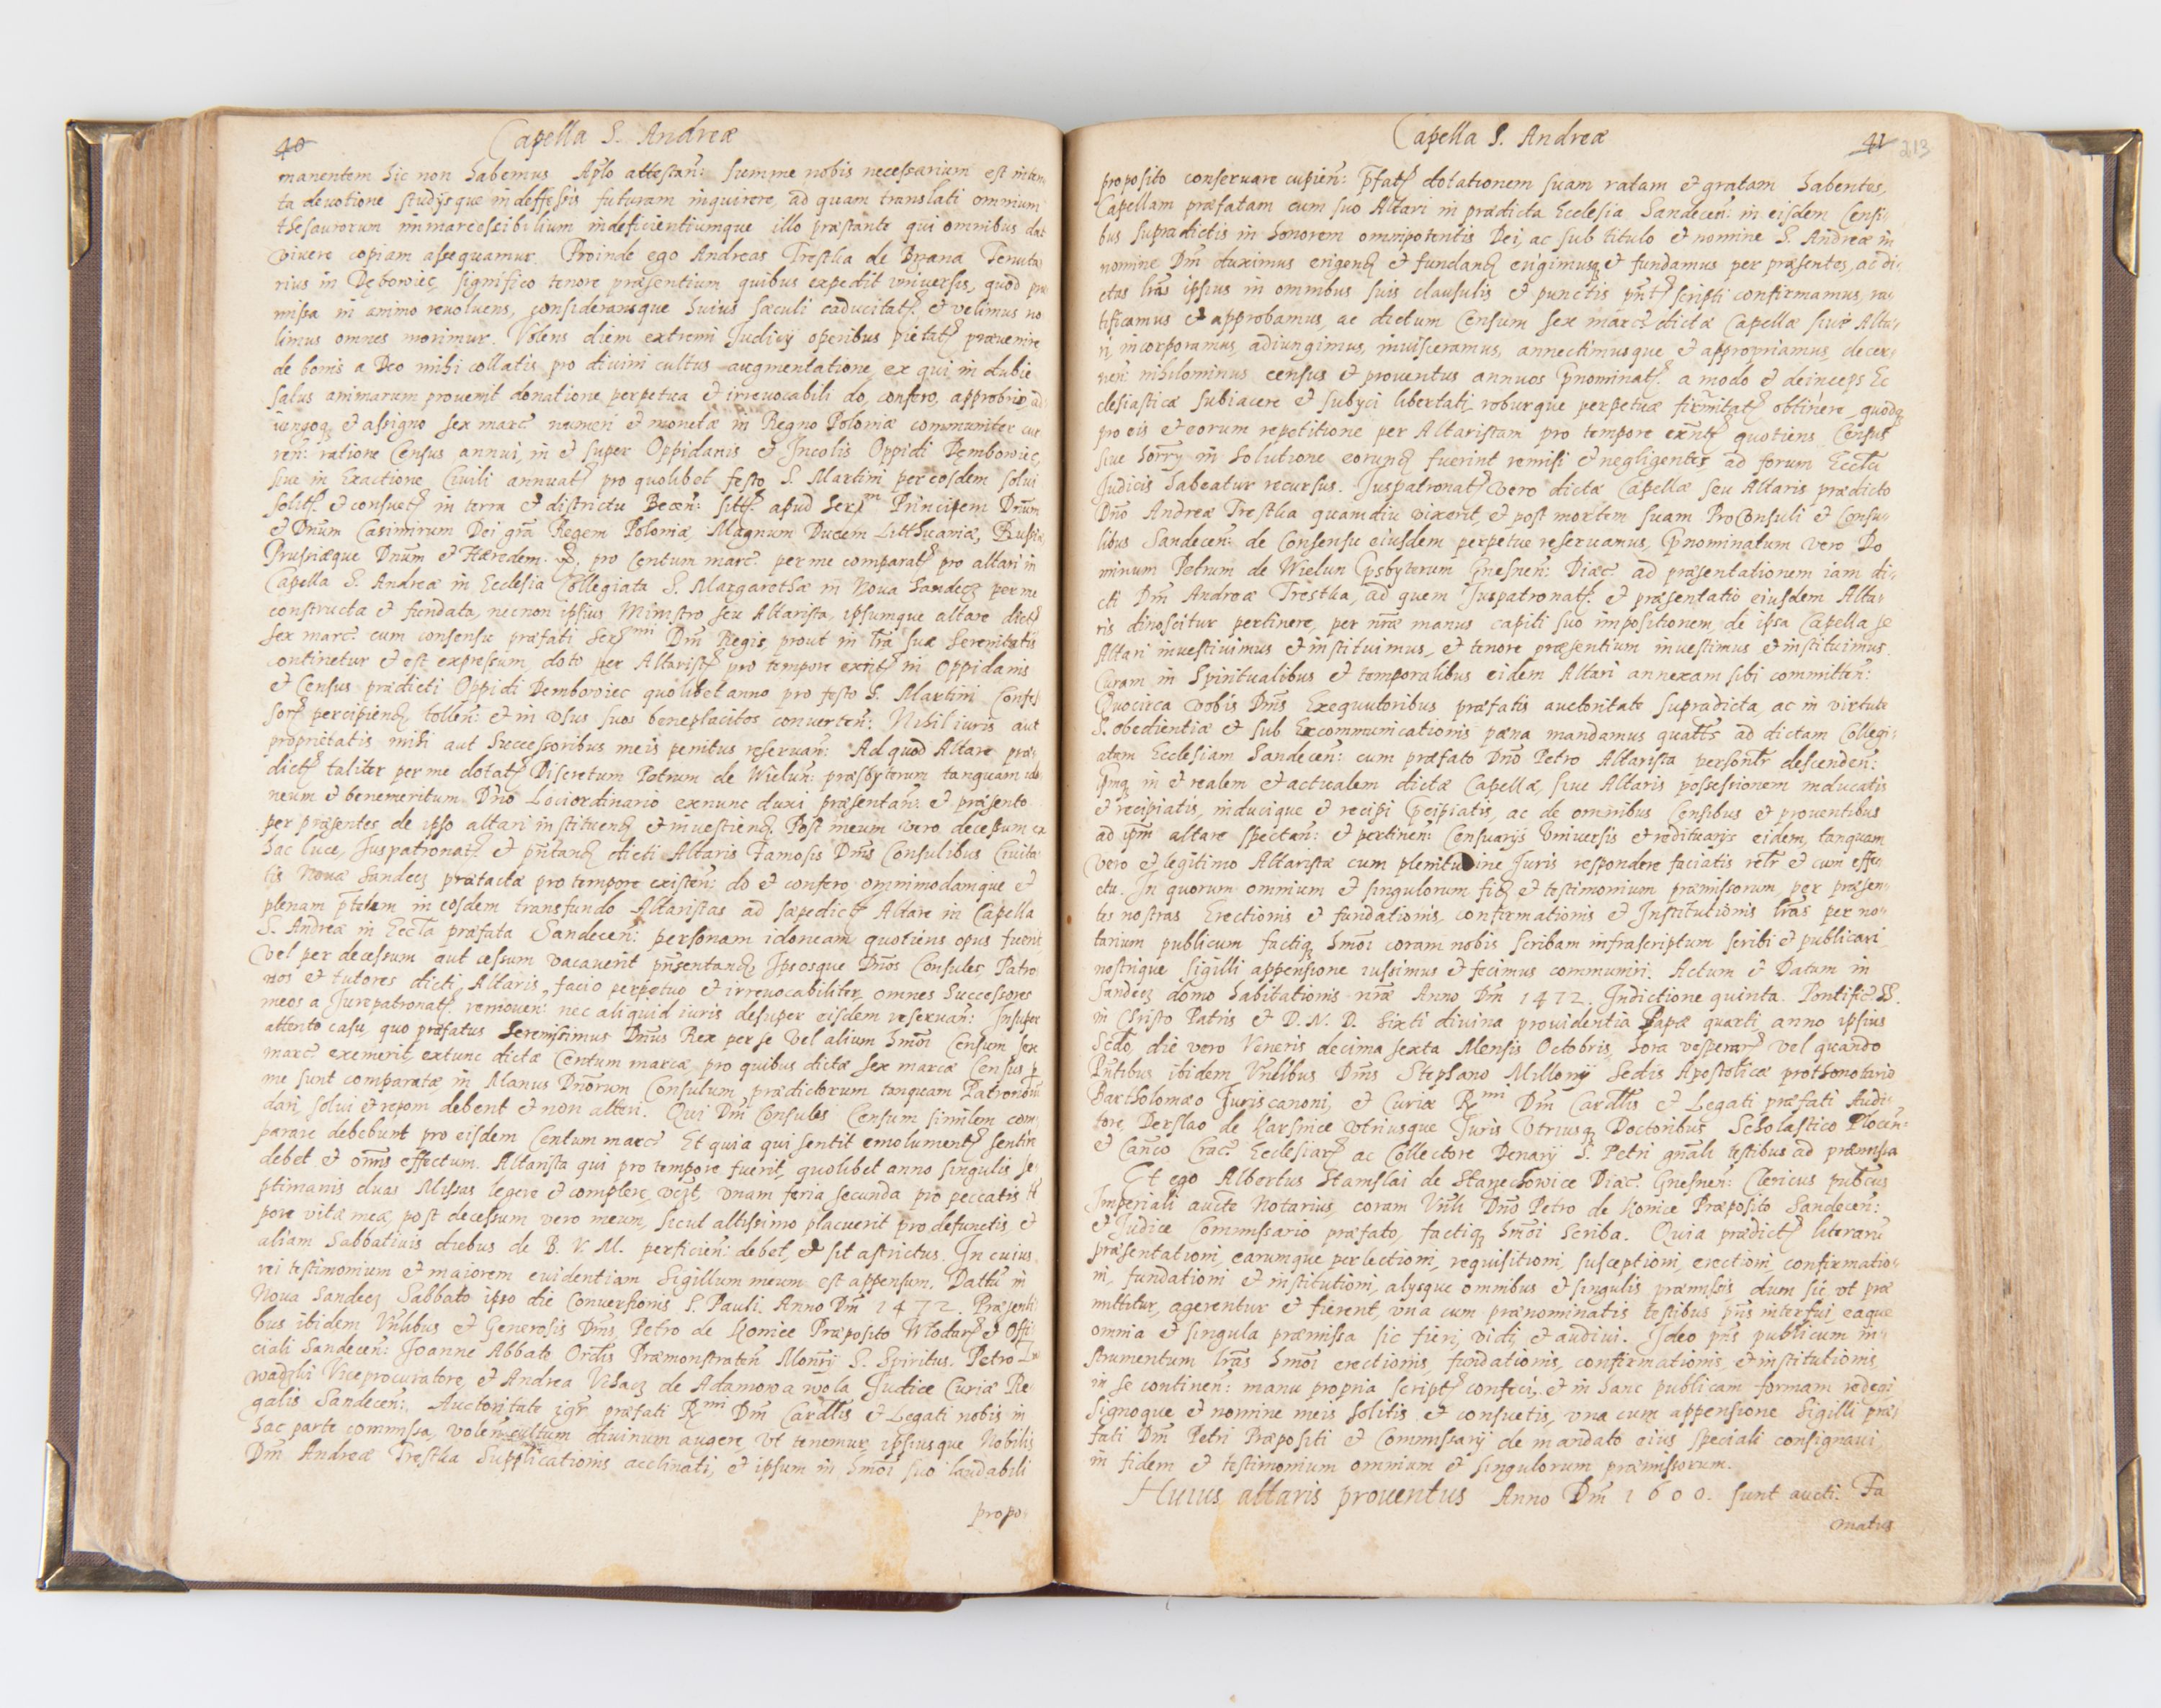 40
Capella S. Andreæ
manentem hic non habemus Aplo attestan: summe nobis necessarium est inten
ta deuotione studijsque indeffessis futuram inquirere, ad quam translati omnium
thesaurorum immarcessibilium indeficientiumque illo præstante qui omnibus dat
viuere copiam assequamur. Proinde ego Andreas Trestka de Tenuta
rius in Dębowiec, significo tenore præsentium quibus expedit vniuersis, quod præ
missa in animo reuoluens, consideransque huius sæculi caducitat. et velimus no
limus omnes morimur. Volens diem extremi Judicij operibus pietat. præuenire
de bonis a Deo mihi collatis pro diuini cultus augmentatione, ex qui in dubie
salus animarum prouenit donatione perpetua et irreuocabili do, confero, approbrio, ad
iungoq; et assigno sex marc. numeri et monetæ in Regno Poloniæ communiter cur
ren: ratione Census annui, in et super Oppidanis et Incolis Oppidi Dembowiec,
siue in Exactione Ciuili annuat. pro quolibet festo S. Martini per eosdem solui
solit. et consuet. in terra et districtu Beæn: sitt. apud Ser.m Principem Dnum
et Dnum Casimirum Dei gra Regem Poloniæ, Magnum Ducem Litthuaniæ, Russiæ
Prussiæque Dnum et Hæredem. &, pro Centum marc. per me comparat. pro altari in
Capella S. Andreæ in Ecclesia Collegiata S. Margarethæ in Noua Sandecz per me
constructa et fundata, necnon ipsius Ministro seu Altarista, ipsumque altare dict.
sex marc. cum consensu præfati Ser.mi Dni Regis, prout in lra suæ Serenitatis
continetur et est expressum, doto per Altarist. pro tempore exnt. in Oppidanis
et Census prædicti Oppidi Dembowiec quolibet anno pro festo S. Martini Confes
sor. percipiend. tollen: et in vsus suos beneplacitos conuerten: Nihil iuris aut
proprietatis mihi aut Successoribus meis penitus reseruan: Ad quod Altare præ
dict. taliter per me dotat. Discretum Petrum de Wielun: præsbyterum tanquam ido
neum et benemeritum Dno Lociordinario exnunc duxi præsentan: et præsento
per præsentes de ipso altari instituend. et inuestiend. Post meum vero decessum ex
hac luce, Juspatronat. et pntand. dicti Altaris Famosis Dnis Consulibus Ciuita
tis Nouæ Sandecz prætactæ pro tempore existen: do et confero, omnimodamque et
plenam ptetem in eosdem transfundo Altaristas ad sæpedict. Altare in Capella
S. Andreæ in Eccla præfata Sandecen: personam idoneam, quotiens opus fuerit
vel per decessum aut cessum vacauerit pnsentand. Ipsosque Dnos Consules, Patro
nos et tutores dicti Altaris, facio perpetuo et irreuocabiliter omnes Successores
meos a Jurepatronat. remouen: nec aliquid iuris desuper eisdem reseruan: Insuper
attento casu quo præfatus Serenissimus Dnus Rex per se vel alium hmoi Censum sex
marc. exemerit, extunc dictæ Centum marcæ pro quibus dictæ sex marcæ Census p
me sunt comparatæ in Manus Dnorum Consulum prædictorum tanquam Patronorum
dari, solui et reponi debent et non alteri. Qui Dni Consules Censum similem com
parare debebunt pro eisdem Centum marc. Et quia qui sentit emolument. sentire
debet et onus effectum. Altarista qui pro tempore fuerit, quolibet anno singulis se
ptimanis duas Missas legere et complere, vcjt, vnam feria secunda pro peccatis te
pore vitæ meæ, post decessum vero meum, sicut altissimo placuerit pro defunctis, et
aliam Sabbatiuis diebus de B. V. M. perficien: debet, et sit astrictus. In cuius
rei testimonium et maiorem euidentiam Sigillum meum est appensum. Dattu in
Noua Sandecz Sabbato ipso die Conuersionis S. Pauli. Anno Dni 1472. Præsenti
bus ibidem Vnlibus et Generosis Dnis, Petro de Konice Præposito Wlodar. et Offi
ciali Sandecen: Joanne Abbate Ordis Præmonstraten Monri S. Spiritus. Petro
Viceprocuratore, et Andrea de Adamowa wola Judice Curiæ Re
galis Sandecen:. Auctoritate igr præfati R.mi Dni Cardlis et Legati nobis in
hac parte commissa, volen cultum diuinum augere, vt tenemur, ipsiusque Nobilis
Dni Andreæ Trestka Supplicationis acclinati, et ipsum in hmoi suo laudabili
propo-
Capella S. Andreæ
41 213
proposito conseruare cupien: pfat. dotationem suam ratam et gratam habentes,
Capellam præfatam cum suo Altari in prædicta Ecclesia Sandecen: in eisdem Censi-
bus supradictis in honorem omnipotentis Dei, ac sub titulo et nomine S. Andreæ in
nomine Dni duximus erigend. et fundand. erigimusq. et fundamus per præsentes, ac di-
ctas lras ipsius in omnibus suis clausulis et punctis pnt. scripti confirmamus, ra-
tificamus et approbamus, ac dictum Censum sex marc. dictæ Capellæ siue Alta-
ri incorporamus, adiungimus, inuisceramus, annectimusque et appropriamus, decer-
nen: nihilominus census et prouentus annuos pnominat. a modo et deinceps Ec
clesiasticæ subiacere et subijci libertati, roburque perpetuæ firmitat. obtinere, quodq.
pro eis et eorum repetitione per Altaristam pro tempore exnt. quotiens Census
siue in Solutione eorund. fuerint remisi et negligentes ad forum Eccla
Judicis habeatur recursus. Juspatronat. vero dictæ Capellæ seu Altaris prædicto
Dno Andreæ Trestka quamdiu vixerit, et post mortem suam ProConsuli et Consu-
libus Sandecen: de Consensu eiusdem perpetue reseruamus, pnominatum vero Do
minum Petrum de Wielun psbyterum Gnesnen: Diæc. ad præsentationem iam di-
cti Dni Andreæ Trestka, ad quem Juspatronat. et præsentatio eiusdem Alta-
ris dinoscitur pertinere, per nræ manus capiti suo impositionem, de ipsa Capella se
Altari inuestiuimus et instituimus, et tenore præsentium inuestimus et instituimus.
Curam in Spiritualibus et temporalibus eidem Altari annexam sibi committen:
Quocirca vobis Dnis Exequutoribus præfatis auctoritate supradicta, ac in virtute
S. obedientiæ et sub Excommunicationis pæna mandamus quatts ad dictam Collegi-
atam Ecclesiam Sandecen: cum præfato Dno Petro Altarista personlr descenden:
ipmq. in et realem et actualem dictæ Capellæ, siue Altaris possessionem inducatis
et recipiatis, inducique et recipi pcipiatis, ac de omnibus Censibus et prouentibus
ad ipm altare spectan: et pertinen: Censuarijs vniuersis et redituarijs eidem, tanquam
vero et legitimo Altaristæ cum plenitudine Juris respondere faciatis retr et cum effe-
ctu. In quorum omnium et singulorum fid. et testimonium præmissorum, per præsen-
tes nostras Erectionis et fundationis, confirmationis et Institutionis lras per no-
tarium publicum factiq. hmoi coram nobis scribam infrascriptum scribi et publicari
nostrique sigilli appensione iussimus et fecimus communiri. Actum et Datum in
Sandecz domo habitationis nræ Anno Dni 1472. Indictione quinta. Pontific. SS.
in Christo Patris et D. N. D. Sixti diuina prouidentia Papæ quarti, anno ipsius
Scdo, die vero Veneris decima sexta Mensis Octobris, hora vesperar. vel quando
Pntibus ibidem Vnlibus Dnis Stephano Millonij Sedis Apostolicæ prothonotario
Bartholomæo Juriscanoni, et Curiæ R.mi Dni Cardlis et Legati præfati Audi-
tore, Derslao de Karsnice vtriusque Juris Vtriusq. Doctoribus Scholastico Plocen:
et Canco Crac. Ecclesiar. ac Collectore Denarij S. Petri gnali testibus ad præmissa
Et ego Albertus Stanislai de Stanechowice Diæc. Gnesnen: Clericus pubcus
Imperiali aucte Notarius, coram Vnli Dno Petro de Konice Præposito Sandecen:
et Judice Commissario præfato, factiq. hmoi Scriba. Quia prædict. literaru
præsentationi, earumque perlectioni, requisitioni, susceptioni, erectioni, confirmatio-
ni, fundationi et institutioni, alijsque omnibus et singulis præmissis dum sic vt præ
mittitur, agerentur et fierent, vna cum prænominatis testibus pns interfui, eaque
omnia et singula præmissa sic fieri, vidi, et audiui. Ideo pns publicum in-
strumentum lras hmoi erectionis, fundationis, confirmationis, et institutionis,
in se continen: manu propria script. confeci, et in hanc publicam formam redegi
Signoque et nomine meis solitis et consuetis, vna cum appensione Sigilli præ-
fati Dni Petri Præpositi et Commissarij de mandato eius speciali consignaui,
in fidem et testimonium omnium et singulorum præmissorum.
Huius altaris prouentus Anno Dni 1600. sunt aucti. Fa
matus